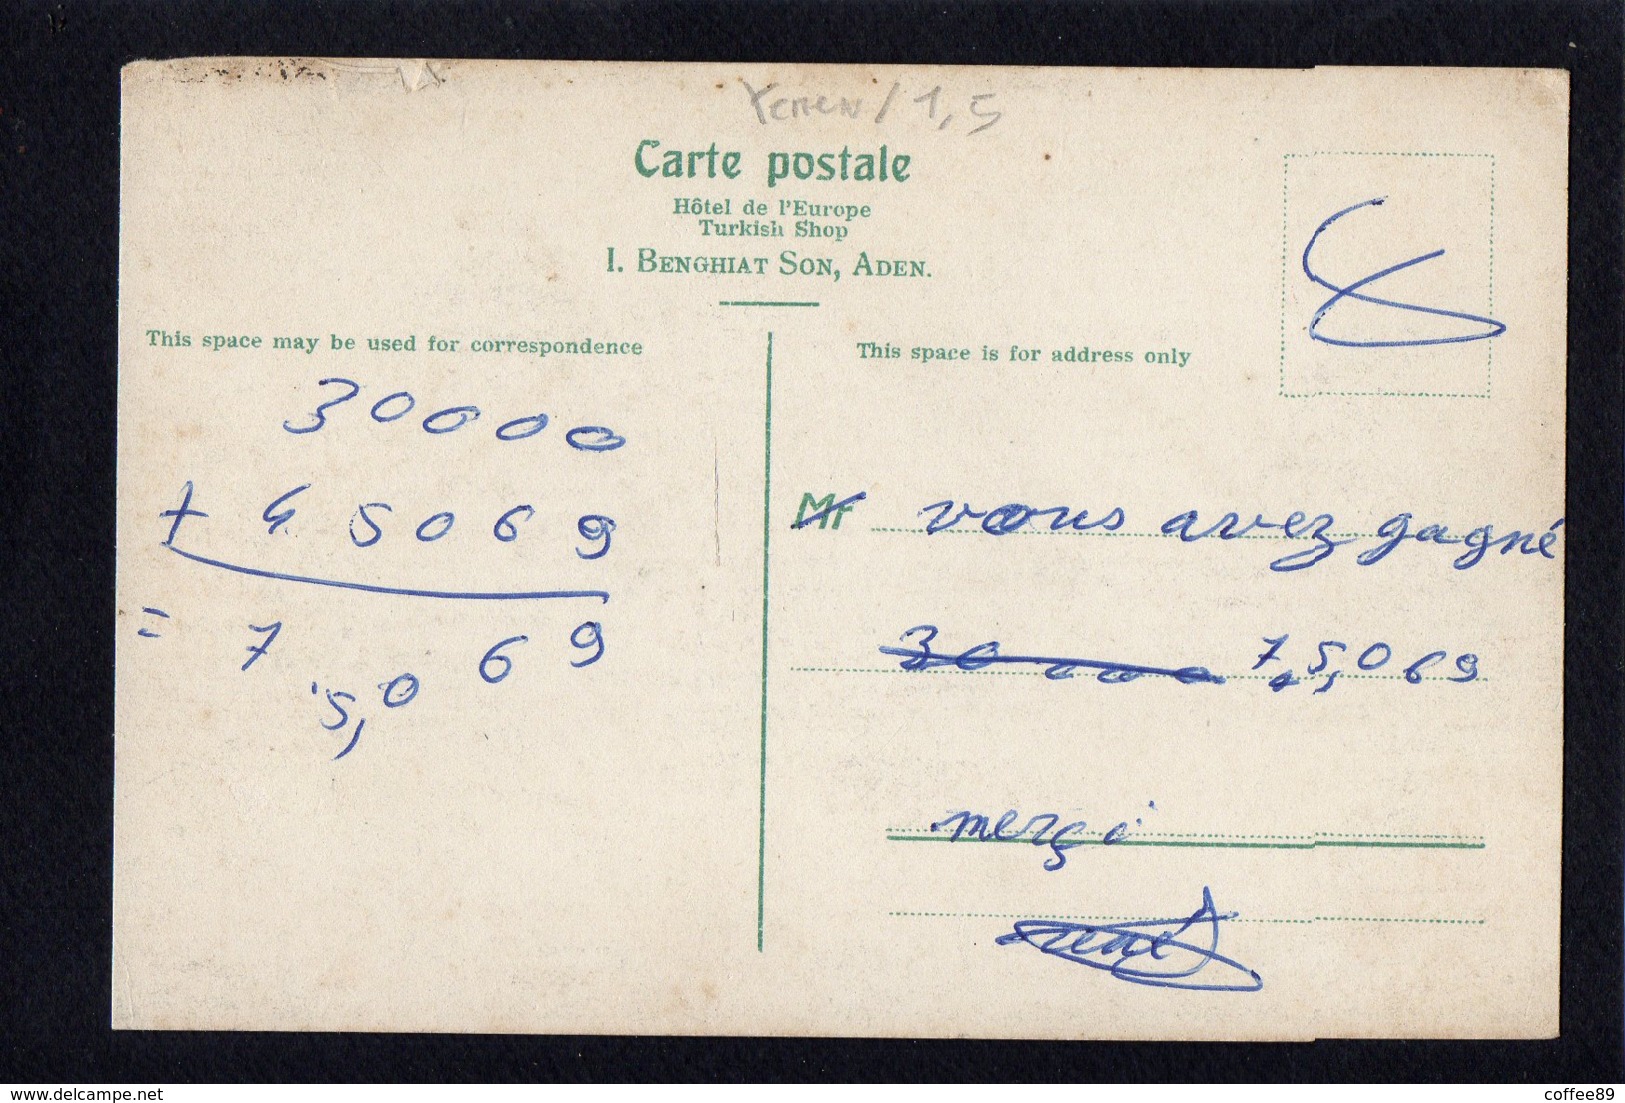 Yemen / 1,5
Carte postale
Hôtel de l'Europe
Turkish Shop
I. BENGHIAT SON, ADEN.
This space may be used for correspondence
30000
+ 45069
= 75,069
This space is for address only
Mr vous avez gagné
30000 75,069
merçi
coffee89